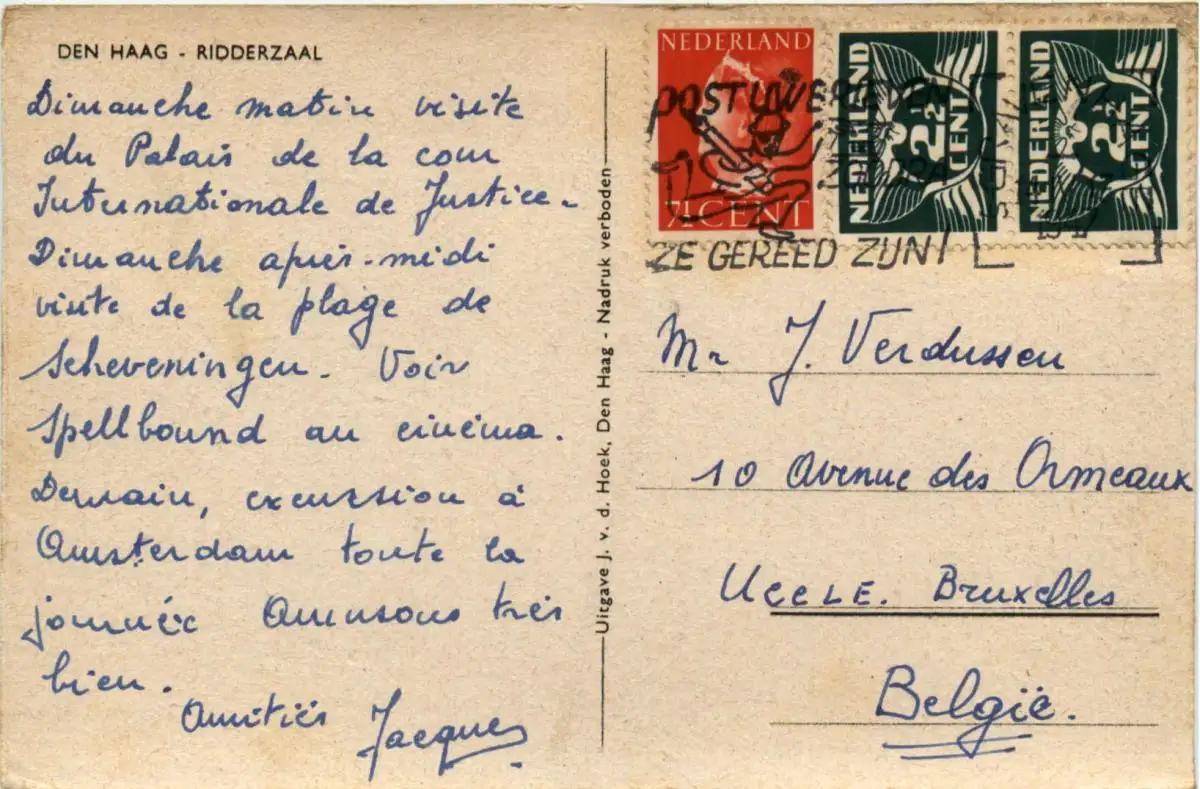 DEN HAAG - RIDDERZAAL
Dimanche matin visite
du Palais de la cour
Internationale de Justice.
Dimanche après-midi
visite de la plage de
Scheveningen. Voir
Spellbound au cinéma.
Demain, excursion à
Amsterdam toute la
journée Amusons très
bien.
Amitiés Jacques
Uitgave J. v. d. Hoek, Den Haag - Nadruk verboden
NEDERLAND
7½ CENT
NEDERLAND
2½
CENT
NEDERLAND
2½
CENT
POST UW BRIEVEN
ZE GEREED ZIJN!
Mr J. Verdussen
10 Avenue des Ormeaux
UCCLE. Bruxelles
België.